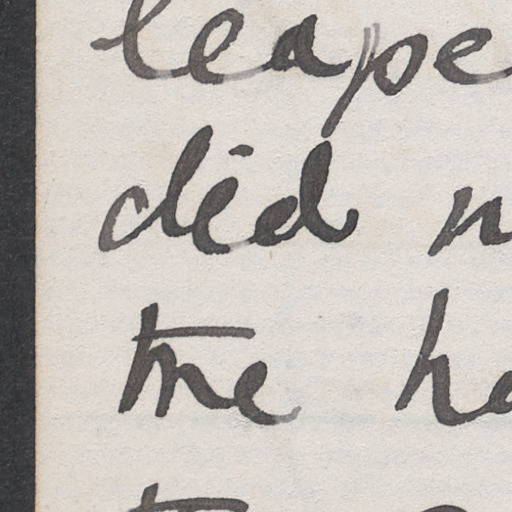 leape
did n
the ho